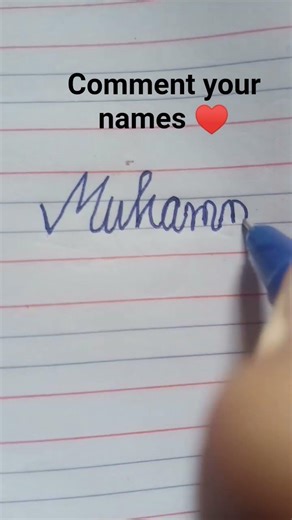 Comment your
names ♥️
Muhamn